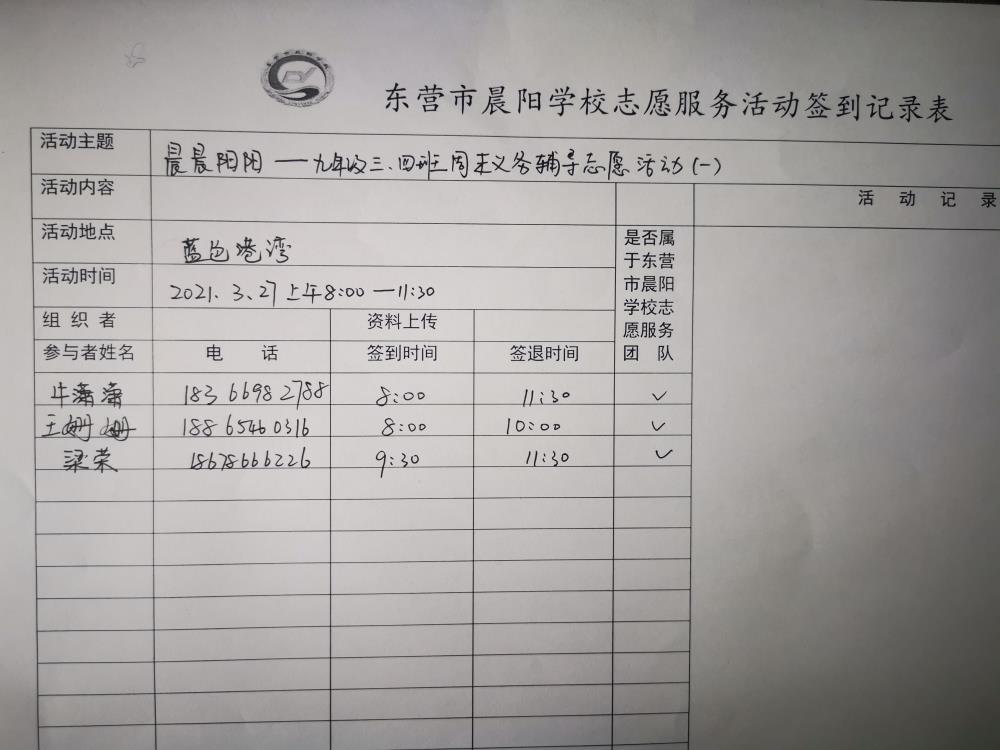 东营市晨阳学校志愿服务活动签到记录表
活动主题 晨晨阳阳 — 九年级三、四班周末义务辅导志愿活动(一)
活动内容 活动记录
活动地点 蓝色港湾
是否属于东营市晨阳学校志愿服务团队
活动时间 2021.3.27上午8:00—11:30
组织者 资料上传
参与者姓名 电话 签到时间 签退时间
牛潇潇 18366982788 8:00 11:30 ✓
王姗姗 18865460316 8:00 10:00 ✓
梁荣 18678666226 9:30 11:30 ✓